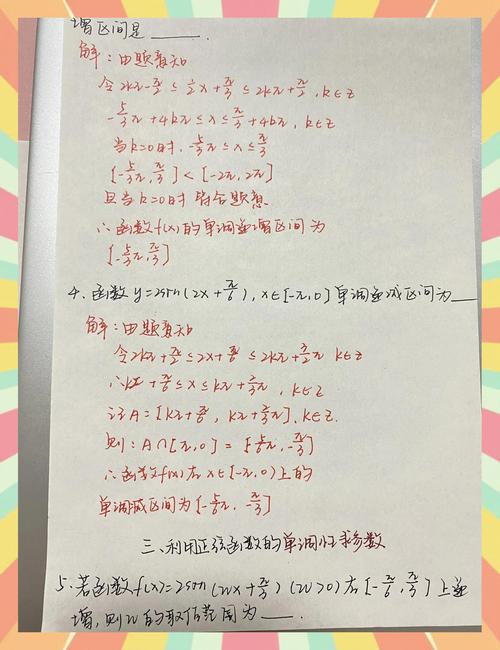 增区间是____.
解：由题意知
令2kπ-π/2≤1/2x+π/3≤2kπ+π/2,k∈Z
-5/3π+4kπ≤x≤π/3+4kπ,k∈Z
当k=0时,-5/3π≤x≤π/3
[-5/3π,π/3]<[-2π,2π]
且当k=0时 符合题意
∴函数f(x)的单调递增区间为
[-5/3π,π/3]
4、函数y=2sin(2x+π/6),x∈[-π,0]单调递减区间为__
解：由题意知
令2kπ+π/2≤2x+π/6≤2kπ+3/2π k∈Z
∴kπ+π/6≤x≤kπ+2/3π,k∈Z
记A=[kπ+π/6,kπ+2/3π],k∈Z.
则:A∩[π,0]=[-5/6π,-π/3]
∴函数f(x)在x∈[-π,0)上的
单调减区间为[-5/6π,-π/3]
三、利用正弦函数的单调性求参数
5、若函数f(x)=2sin(wx+π/3)(w>0)在[-π/6,π/3]上递
增,则w的取值范围为___.